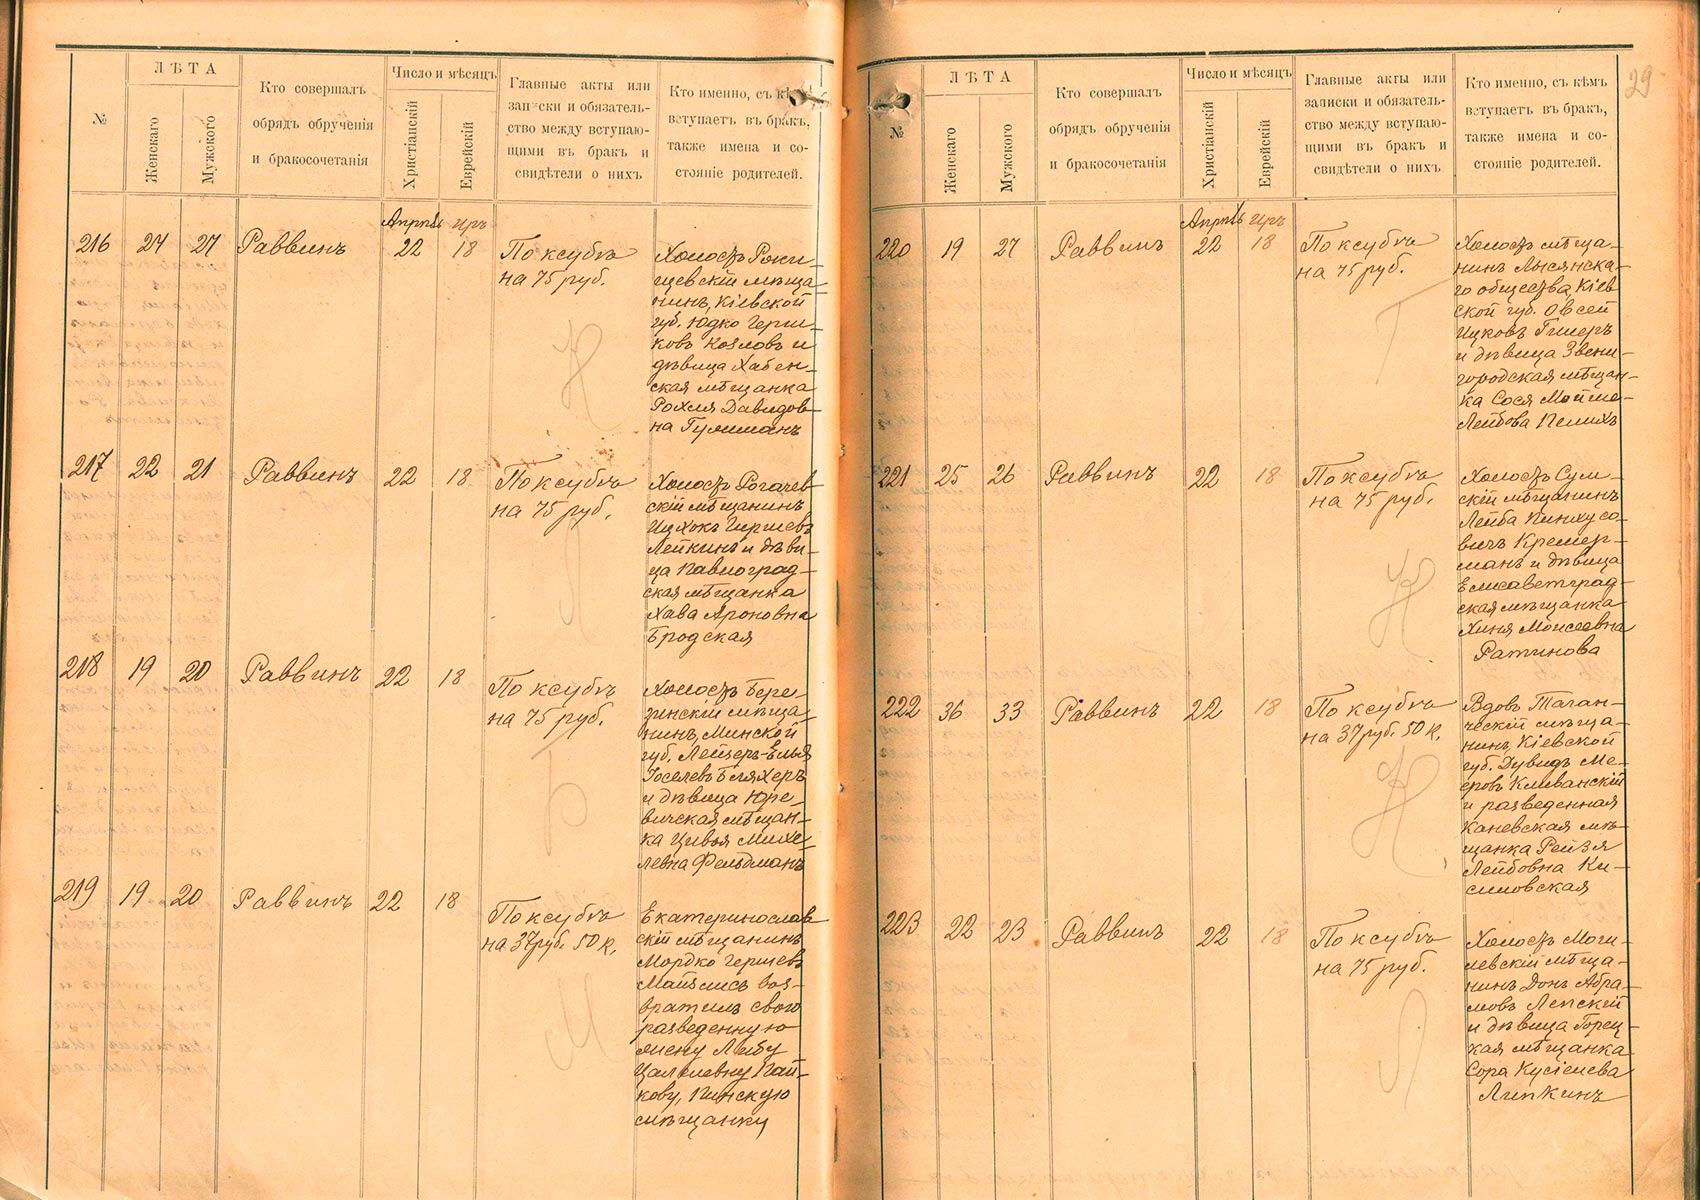 29
№
ЛѢТА
Женскаго
Мужского
Кто совершалъ
обрядъ обрученія
и бракосочетанія
Число и мѣсяцъ
Христіанскій
Еврейскій
Главные акты или
записки и обязатель-
ство между вступаю-
щими въ бракъ и
свидѣтели о нихъ
Кто именно, съ кѣмъ
вступаетъ въ бракъ,
также имена и со-
стояніе родителей.
Апрѣль Иръ
216 24 27 Раввинъ 22 18
По ксубѣ
на 75 руб.
Н
Холостъ Роки-
щевскій мѣща-
нинъ, Кіевской
губ. Юдко Герш-
ковъ Козловъ и
дѣвица Хабен-
ская мѣщанка
Рохля Давидов-
на Гулшманъ
217 22 21 Раввинъ 22 18
По ксубѣ
на 75 руб.
Л
Холостъ Рогачев
скій мѣщанинъ
Ицхокъ Гиршевъ
Лейкинъ и дѣви-
ца Павлоград-
ская мѣщанка
Хава Ароновна
Бродская
218 19 20 Раввинъ 22 18
По ксубѣ
на 75 руб.
Б
Холостъ Бере-
зинскій мѣща-
нинъ, Минской
губ. Лейзеръ-Елья
Іоселевъ Бляхеръ
и дѣвица Юре-
вичская мѣщан-
ка Цивья Михе-
левна Фельдманъ
219 19 20 Раввинъ 22 18
По ксубѣ
на 37 руб. 50 к.
М
Екатеринослав
скій мѣщанинъ
Мордко Гершевъ
Майзлисъ воз-
вратилъ свою
разведенную
жену Либу
Цаллевну Пай-
кову, Пинскую
мѣщанку
№
ЛѢТА
Женскаго
Мужского
Кто совершалъ
обрядъ обрученія
и бракосочетанія
Число и мѣсяцъ
Христіанскій
Еврейскій
Главные акты или
записки и обязатель-
ство между вступаю-
щими въ бракъ и
свидѣтели о нихъ
Кто именно, съ кѣмъ
вступаетъ въ бракъ,
также имена и со-
стояніе родителей.
Апрѣль Иръ
220 19 27 Раввинъ 22 18
По ксубѣ
на 75 руб.
Г
Холостъ мѣща-
нинъ Лысянска-
го общества, Кіев
ской губ. Овсей
Ицковъ Гишеръ
и дѣвица Звени-
городская мѣщан-
ка Сося Мойше-
Лейбова Пемихъ
221 25 26 Раввинъ 22 18
По ксубѣ
на 75 руб.
Н
Холостъ Сум-
скій мѣщанинъ
Лейба Пинхусо-
вичъ Кремер-
манъ и дѣвица
Елисаветград-
ская мѣщанка
Хиня Моисеевна
Ратинова
222 36 33 Раввинъ 22 18
По ксубѣ
на 37 руб. 50 к.
Н
Вдовъ Таган-
ческій мѣща-
нинъ, Кіевской
губ. Дувидъ Ме-
еровъ Кливанскій
и разведенная
Каневская мѣ-
щанка Рейзя
Лейбовна Ки-
силовская
223 22 23 Раввинъ 22 18
По ксубѣ
на 75 руб.
Л
Холостъ Моги-
левскій мѣща-
нинъ Донъ Абра-
мовъ Лепскій
и дѣвица Горец-
кая мѣщанка
Сора Кусіелева
Липкинъ